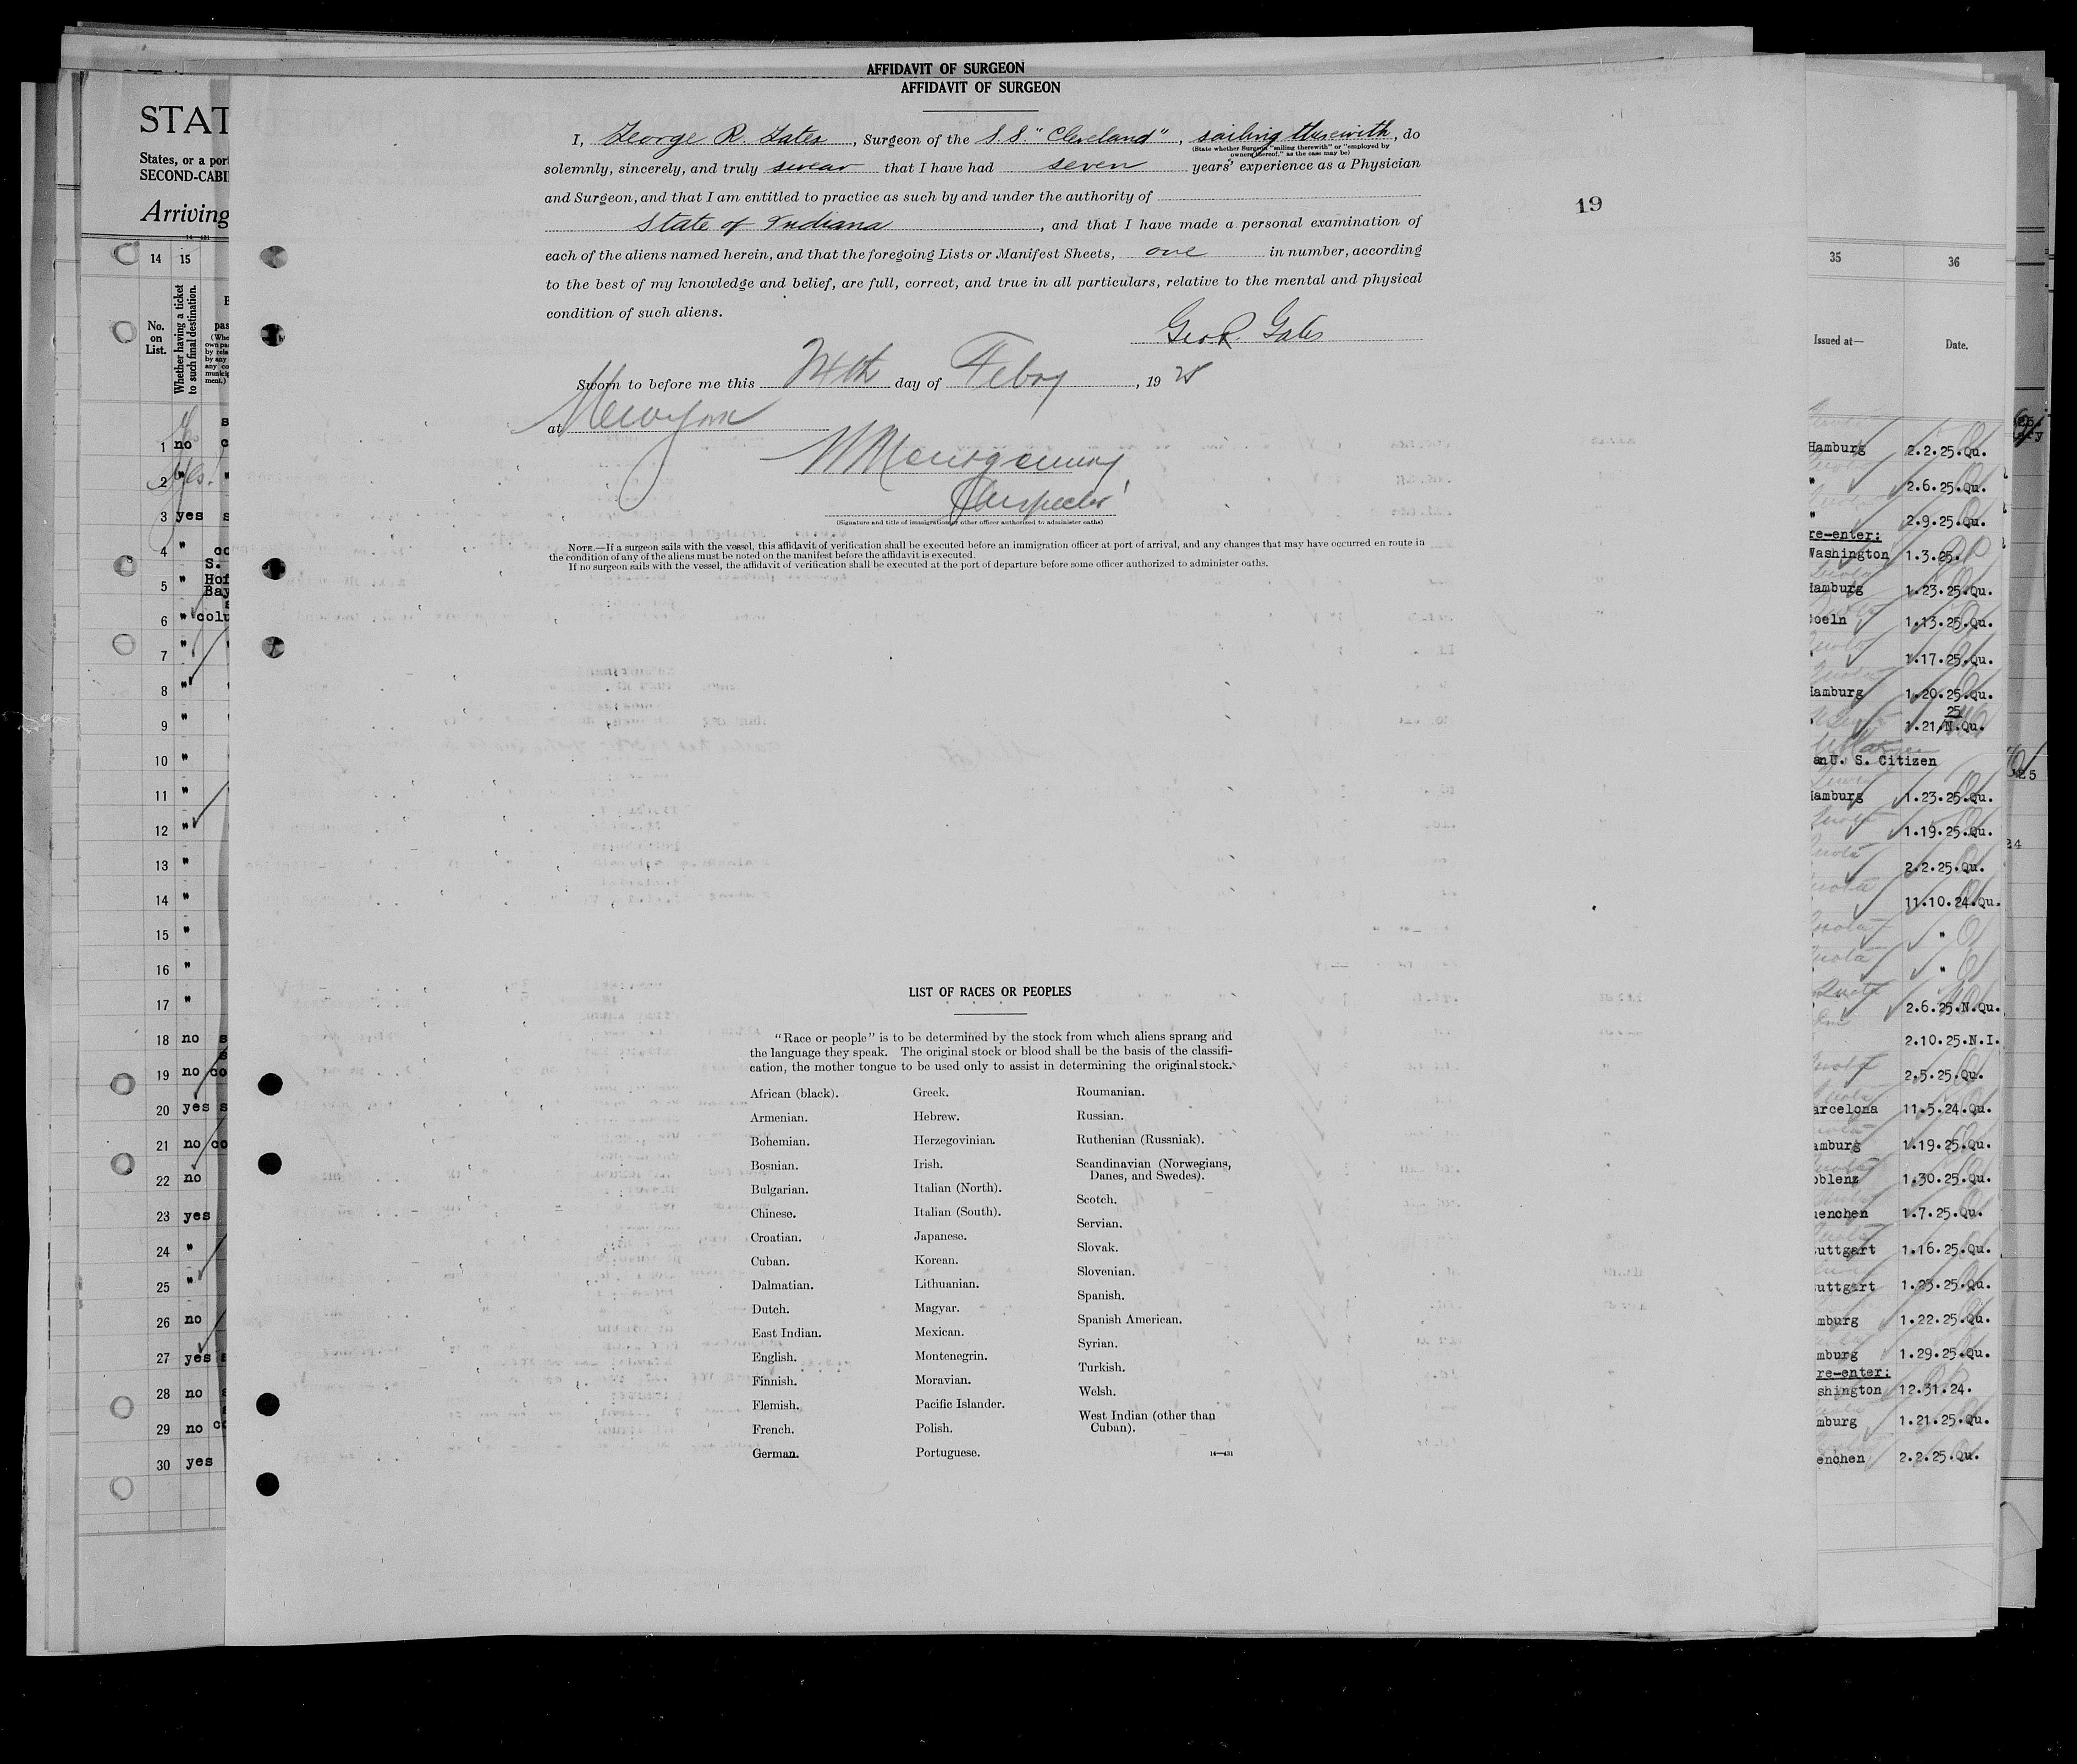 AFFIDAVIT OF SURGEON
AFFIDAVIT OF SURGEON
I, George R. Gates, Surgeon of the S.S. "Cleveland", sailing therewith, do
(State whether Surgeon "sailing therewith" or "employed by
owners thereof," as the case may be)
solemnly, sincerely, and truly swear that I have had seven years' experience as a Physician
and Surgeon, and that I am entitled to practice as such by and under the authority of
State of Indiana, and that I have made a personal examination of
each of the aliens named herein, and that the foregoing Lists or Manifest Sheets, one in number, according
to the best of my knowledge and belief, are full, correct, and true in all particulars, relative to the mental and physical
condition of such aliens.
Geo. R. Gates
Sworn to before me this 24th day of Feby, 1925
at New York
W Montgomery
Inspector
(Signature and title of immigration or other officer authorized to administer oaths)
NOTE.—If a surgeon sails with the vessel, this affidavit of verification shall be executed before an immigration officer at port of arrival, and any changes that may have occurred en route in
the condition of any of the aliens must be noted on the manifest before the affidavit is executed.
If no surgeon sails with the vessel, the affidavit of verification shall be executed at the port of departure before some officer authorized to administer oaths.
19
LIST OF RACES OR PEOPLES
"Race or people" is to be determined by the stock from which aliens sprang and
the language they speak. The original stock or blood shall be the basis of the classifi-
cation, the mother tongue to be used only to assist in determining the original stock.
African (black).
Armenian.
Bohemian.
Bosnian.
Bulgarian.
Chinese.
Croatian.
Cuban.
Dalmatian.
Dutch.
East Indian.
English.
Finnish.
Flemish.
French.
German.
Greek.
Hebrew.
Herzegovinian.
Irish.
Italian (North).
Italian (South).
Japanese.
Korean.
Lithuanian.
Magyar.
Mexican.
Montenegrin.
Moravian.
Pacific Islander.
Polish.
Portuguese.
Roumanian.
Russian.
Ruthenian (Russniak).
Scandinavian (Norwegians,
Danes, and Swedes).
Scotch.
Servian.
Slovak.
Slovenian.
Spanish.
Spanish American.
Syrian.
Turkish.
Welsh.
West Indian (other than
Cuban).
14—431
STAT
States, or a port
SECOND-CABI
Arriving
14 15
No.
on
List.
Whether having a ticket
to such final destination.
1 no
2 "
3 yes
4 "
5 "
6 " colu
7 "
8 "
9 "
10 "
11 "
12 "
13 "
14 "
15 "
16 "
17 "
18 no
19 no co
20 yes s
21 no co
22 no
23 yes
24 "
25 "
26 no
27 yes
28 no
29 no
30 yes
35 36
Issued at— Date.
Hamburg 2.2.25.Qu.
" 2.6.25.Qu.
" 2.9.25.Qu.
re-enter:
Washington 1.3.25.
Hamburg 1.23.25.Qu.
oeln 1.13.25.Qu.
1.17.25.Qu.
Hamburg 1.20.25.Qu.
25
1.21.N.Qu.
U. S. Citizen
Hamburg 1.23.25.Qu.
1.19.25.Qu.
2.2.25.Qu.
11.10.24.Qu.
"
"
2.6.25.N.Qu.
2.10.25.N.I.
2.5.25.Qu.
arcelona 11.5.24.Qu.
amburg 1.19.25.Qu.
oblenz 1.30.25.Qu.
uenchen 1.7.25.Qu.
uttgart 1.16.25.Qu.
uttgart 1.23.25.Qu.
mburg 1.22.25.Qu.
mburg 1.29.25.Qu.
re-enter:
shington 12.31.24.
mburg 1.21.25.Qu.
enchen 2.2.25.Qu.